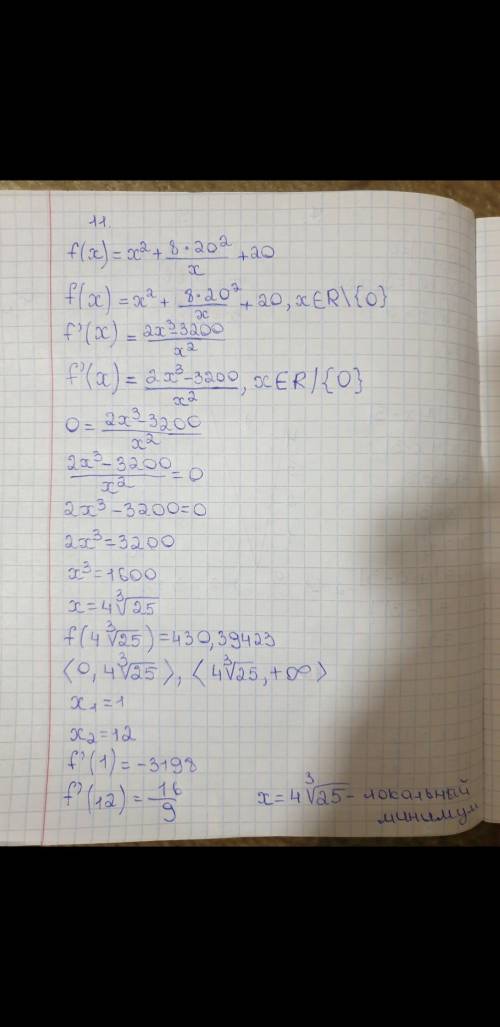 11.
f(x) = x² + 8·20²/x + 20
f(x) = x² + 8·20²/x + 20, x∈R\{0}
f'(x) = 2x³-3200/x²
f'(x) = 2x³-3200/x², x∈R/{0}
0 = 2x³-3200/x²
2x³-3200/x² = 0
2x³-3200=0
2x³=3200
x³=1600
x=4∛25
f(4∛25)=430,39423
⟨0, 4∛25⟩, ⟨4∛25, +∞⟩
x₁=1
x₂=12
f'(1)=-3198
f'(12)=16/9
x=4∛25 - локальный
минимум